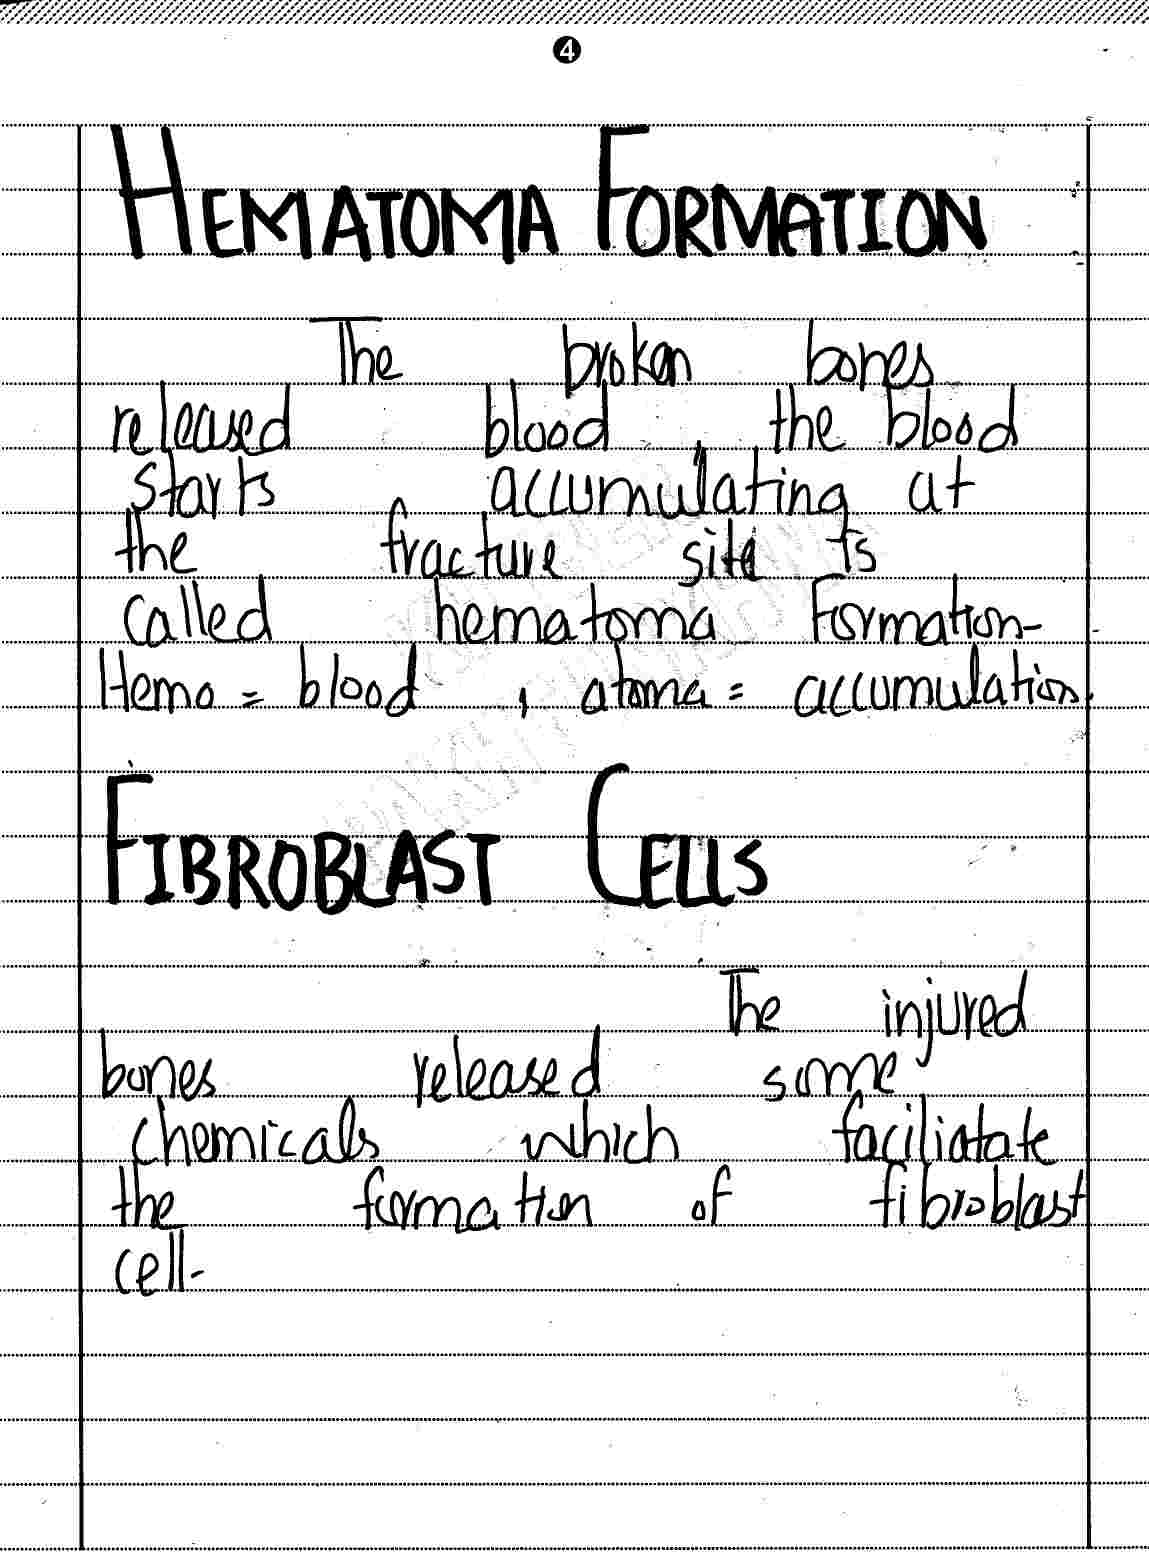 4
HEMATOMA FORMATION
The broken bones
released blood, the blood
starts accumulating at
the fracture site is
called hematoma Formation-
Hemo = blood, atoma = accumulation.
FIBROBLAST CELLS
The injured
bones released some
chemicals which faciliatate
the formation of fibroblast
cell-